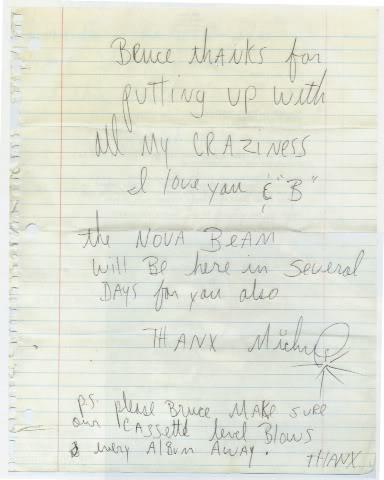 Bruce thANKS for
putting up with
all MY CRAZINESS
I love you & "B"
the NOVA BEAM
will Be here in Several
DAYS for you also
THANX Michael
p.s. please Bruce MAKE sure
our CASSette level Blows
every Album AWAY.
THANX